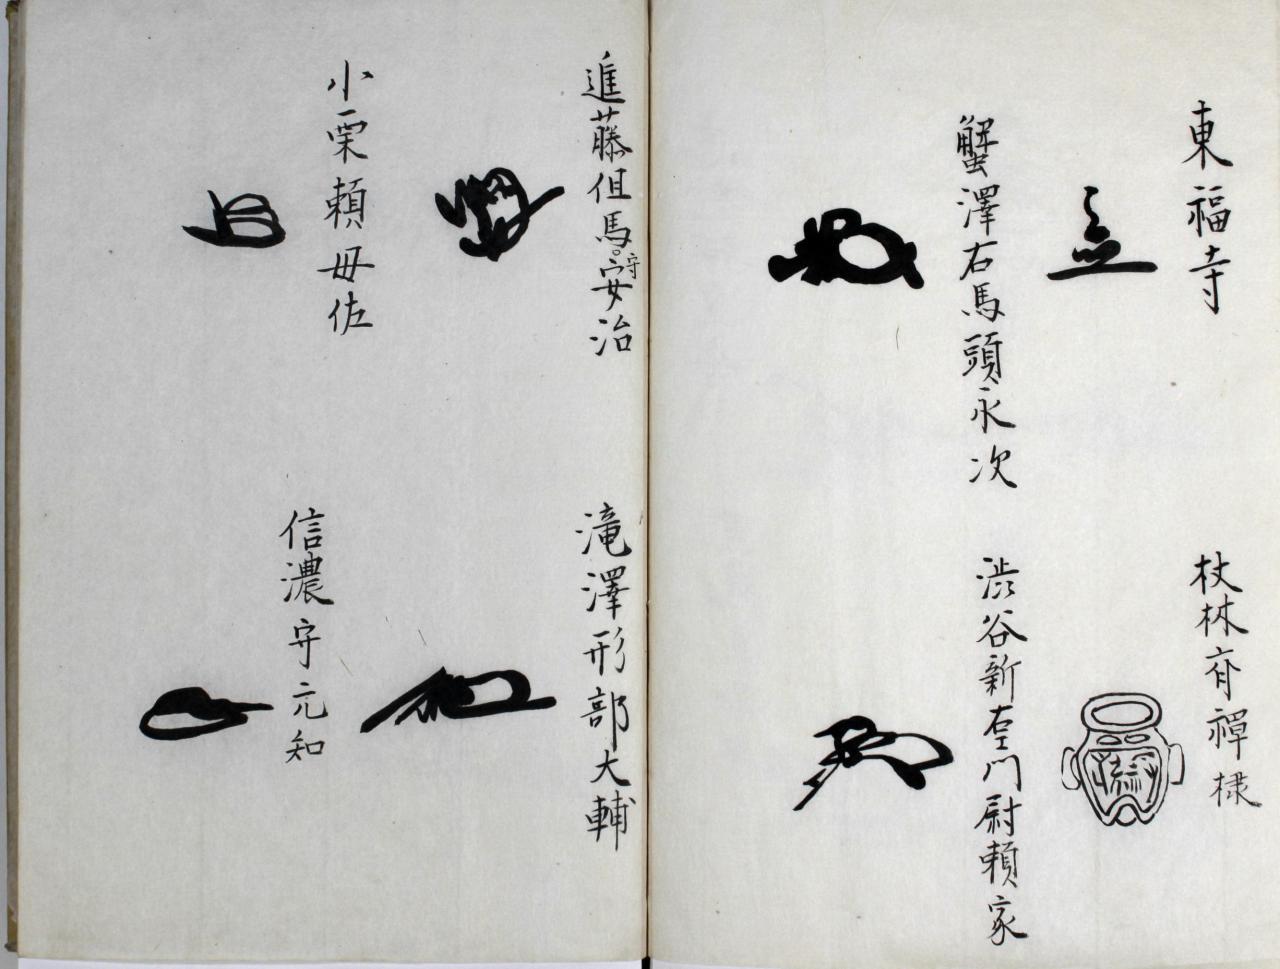 東福寺
杖林斎禅棣
蟹澤右馬頭永次
渋谷新左エ門尉頼家
進藤但馬守安治
滝澤形部大輔
小栗頼母佐
信濃守元知